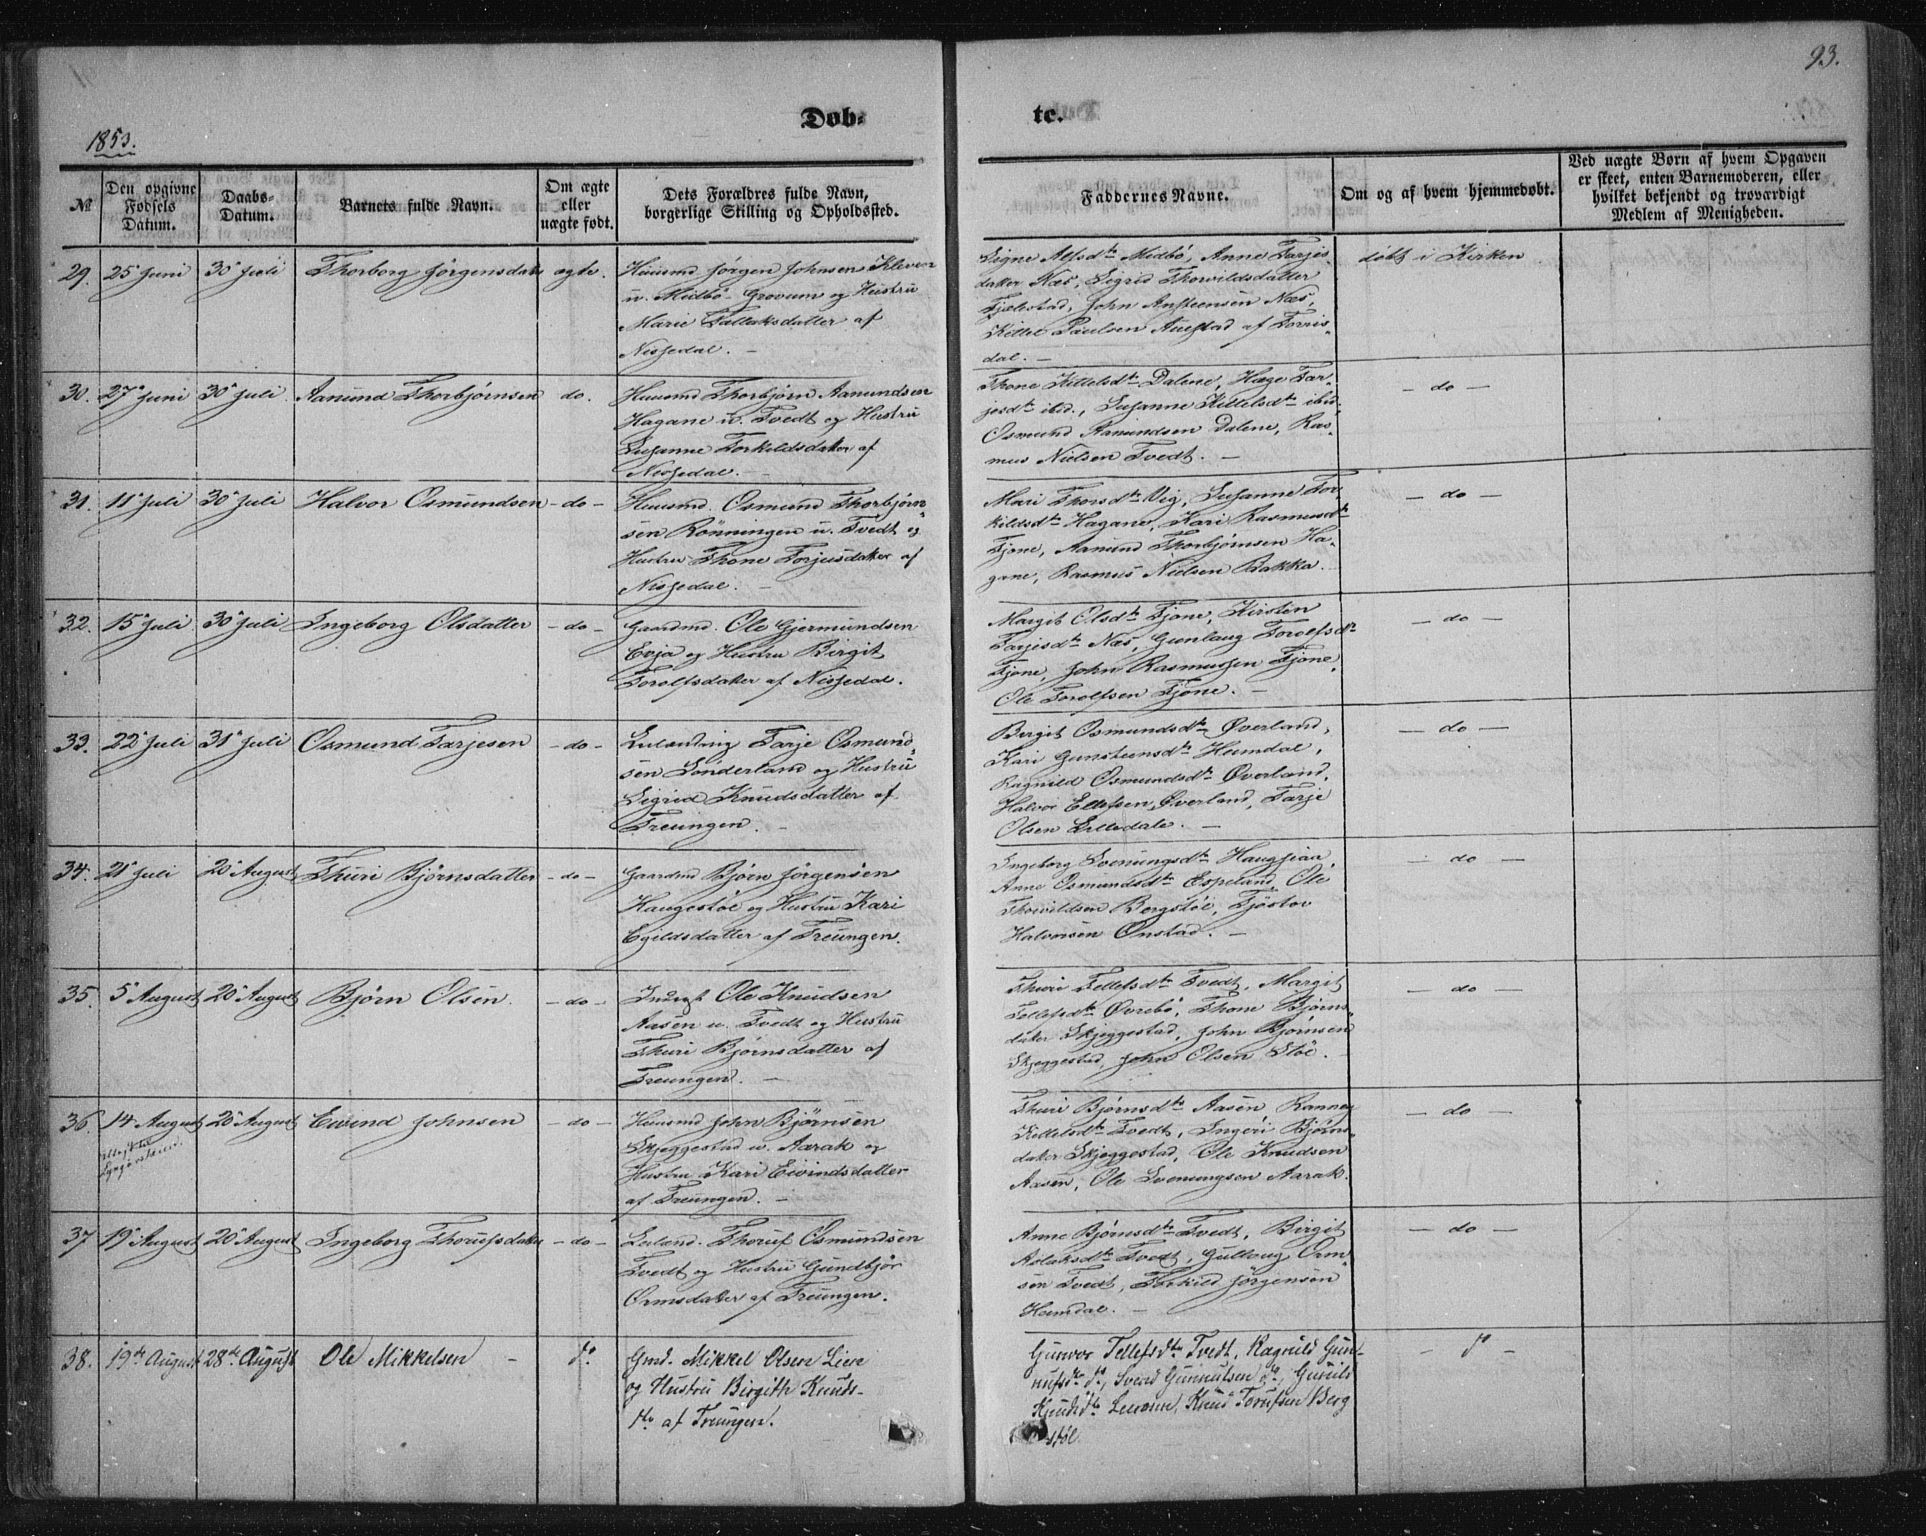 93.
Døb-
te.
1853.
№
Den opgivne
Fødsels
Datum.
Daabs-
Datum.
Barnets fulde Navn.
Om ægte
eller
uægte født.
Dets Forældres fulde Navn,
borgerlige Stilling og Opholdssted.
Faddernes Navne.
Om og af hvem hjemmedøbt.
Ved uægte Børn af hvem Opgaven
er skeet, enten Barnemoderen, eller
hvilket bekjendt og troværdigt
Medlem af Menigheden.
29. 25 Juni 30 Juli Thorborg Jörgensdatr ægte.
Huusmd Jörgen Johnsen Kleven
u. Midbö Grovum og Hustru
Marie Tallaksdatter af
Nissedal. —
Signe Alfsdtr Midbö, Anne Tarjes-
datter Næs, Sigrid Thorvildsdatter
Fjelestad, John Anstensen Næs,
Kittel Paulsen Austad af Torris-
dal. —
döbt i Kirken
30. 27 Juni 30 Juli Aanund Thorbjørnsen do.
Huusmd Thorbjørn Aamundsen
Hagane u. Tvedt og Hustru
Susanne Torkildsdatter af
Nissedal. —
Thone Kittelsdtr Dalene, Hæge Tar-
jesdtr ibid., Susanne Kittelsdtr ibid.
Osmund Aanundsen Dalene, Ras-
mus Nielsen Tvedt. —
— do —
31. 11 Juli 30 Juli Halvor Osmundsen — do —
Huusmd. Osmund Thorbjørn-
sen Rönningen u. Tvedt og
Hustru Thone Torjusdatter af
Nissedal. —
Mari Thorsdtr Vig, Susanne Tor-
kildsdtr Hagane, Kari Rasmusdtr
Fjone, Aanund Thorbjørnsen Ha-
gane, Rasmus Nielsen Bakka.
— do —
32. 15 Juli 30 Juli Ingeborg Olsdatter — do —
Gaardmd. Ole Gjermundsen
Evja og Hustru Birgit
Torolfsdatter af Nissedal.
Margit Olsdtr Fjone, Kirsten
Tarjesdtr Næs, Gunlaug Torolfsdtr
Fjone, John Rasmussen Fjone,
Ole Torolfsen Fjone. —
— do —
33. 22 Juli 31 Juli Osmund Tarjesen — do —
Leilænding Tarje Osmund-
sen Sönderland og Hustru
Sigrid Knudsdatter af
Treungen. —
Birgit Osmundsdtr Øverland,
Kari Gunsteensdtr Heimdal,
Ragnild Osmundsdtr Øverland,
Halvor Ellefsen Øverland, Tarje
Olsen Lilledale. —
— do —
34. 21 Juli 20 August Thuri Bjørnsdatter — do —
Gaardmd Bjørn Jörgensen
Haugestöl og Hustru Kari
Egildsdatter af Treungen.
Ingeborg Svenungsdtr Haugsjaa,
Anne Osmundsdtr Espeland, Ole
Thorvildsen Bergstöl, Tjöstov
Halvorsen Ønstad. —
— do —
35. 5 August 20 August Bjørn Olsen. — do —
Inderst Ole Knudsen
Aasen u. Tvedt og Hustru
Thuri Bjørnsdatter af
Treungen. —
Thuri Tellefsdtr Tvedt, Margit
Tellefsdtr Øvrebö, Thone Bjørns-
datter Skjeggestad, John Bjørnsen
Skjeggestad, John Olsen Stöl. —
— do —
36. 14 August 20 August Eivend Johnsen — do —
Huusmd John Bjørnsen
Skjeggestad u. Aarak og
Hustru Kari Eivindsdatter
af Treungen. —
Thuri Bjørnsdtr Aasen, Ranney
Kittelsdtr Tvedt, Ingeri Bjørns-
datter Skjeggestad, Ole Knudsen
Aasen, Ole Svenungsen Aarak.
— do —
37 19 August 20 August Ingeborg Thorufsdatter — do —
Leilænd. Thoruf Osmundsen
Tvedt og Hustru Gundbjör
Ormsdatter af Treungen.
Anne Bjørnsdtr Tvedt, Birgit
Aslaksdtr Tvedt, Gulloug Orm-
sen Tvedt, Torkild Jörgensen
Heimdal. —
— do —
38. 19de August 28de August Ole Mikkelsen — do.
Gmd. Mikkel Olsen Lien
og Hustru Birgith Knuds-
dtr af Treungen.
Gunvor Tellefsdtr Tvedt, Ragnild Gun-
nufsdtr do, Svend Gunnulfsen do, Gunild
Knudsdtr, Knud Torufsen Berg
stöl
— do —